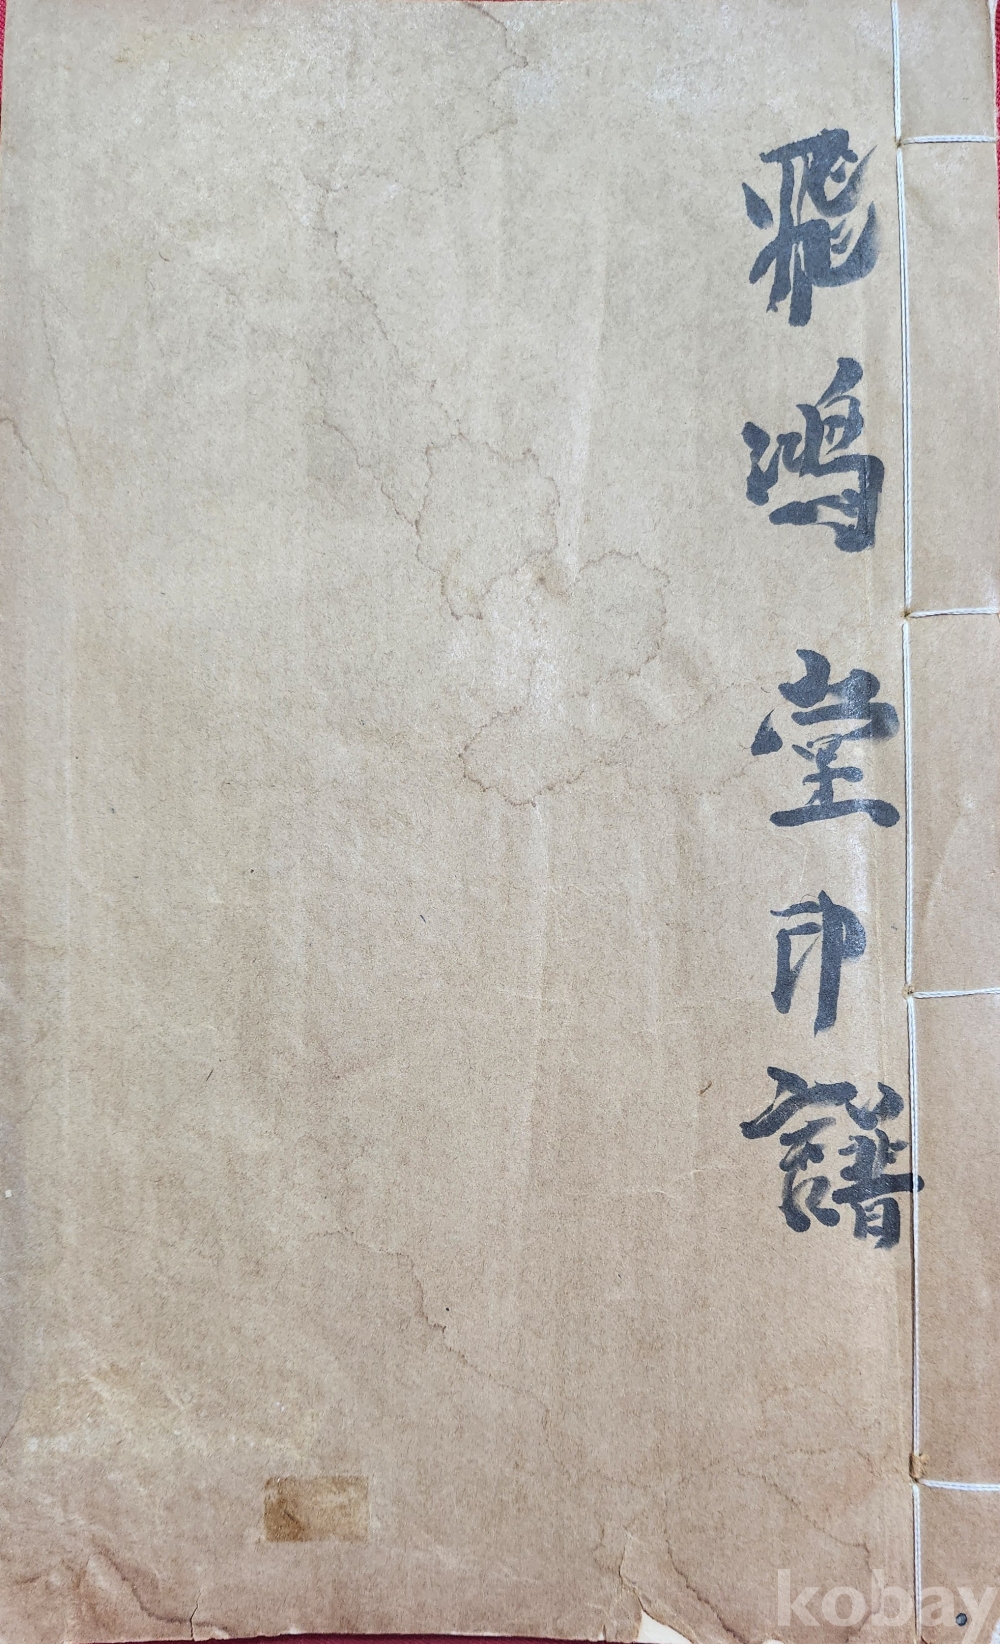 飛鴻堂印譜
kobay